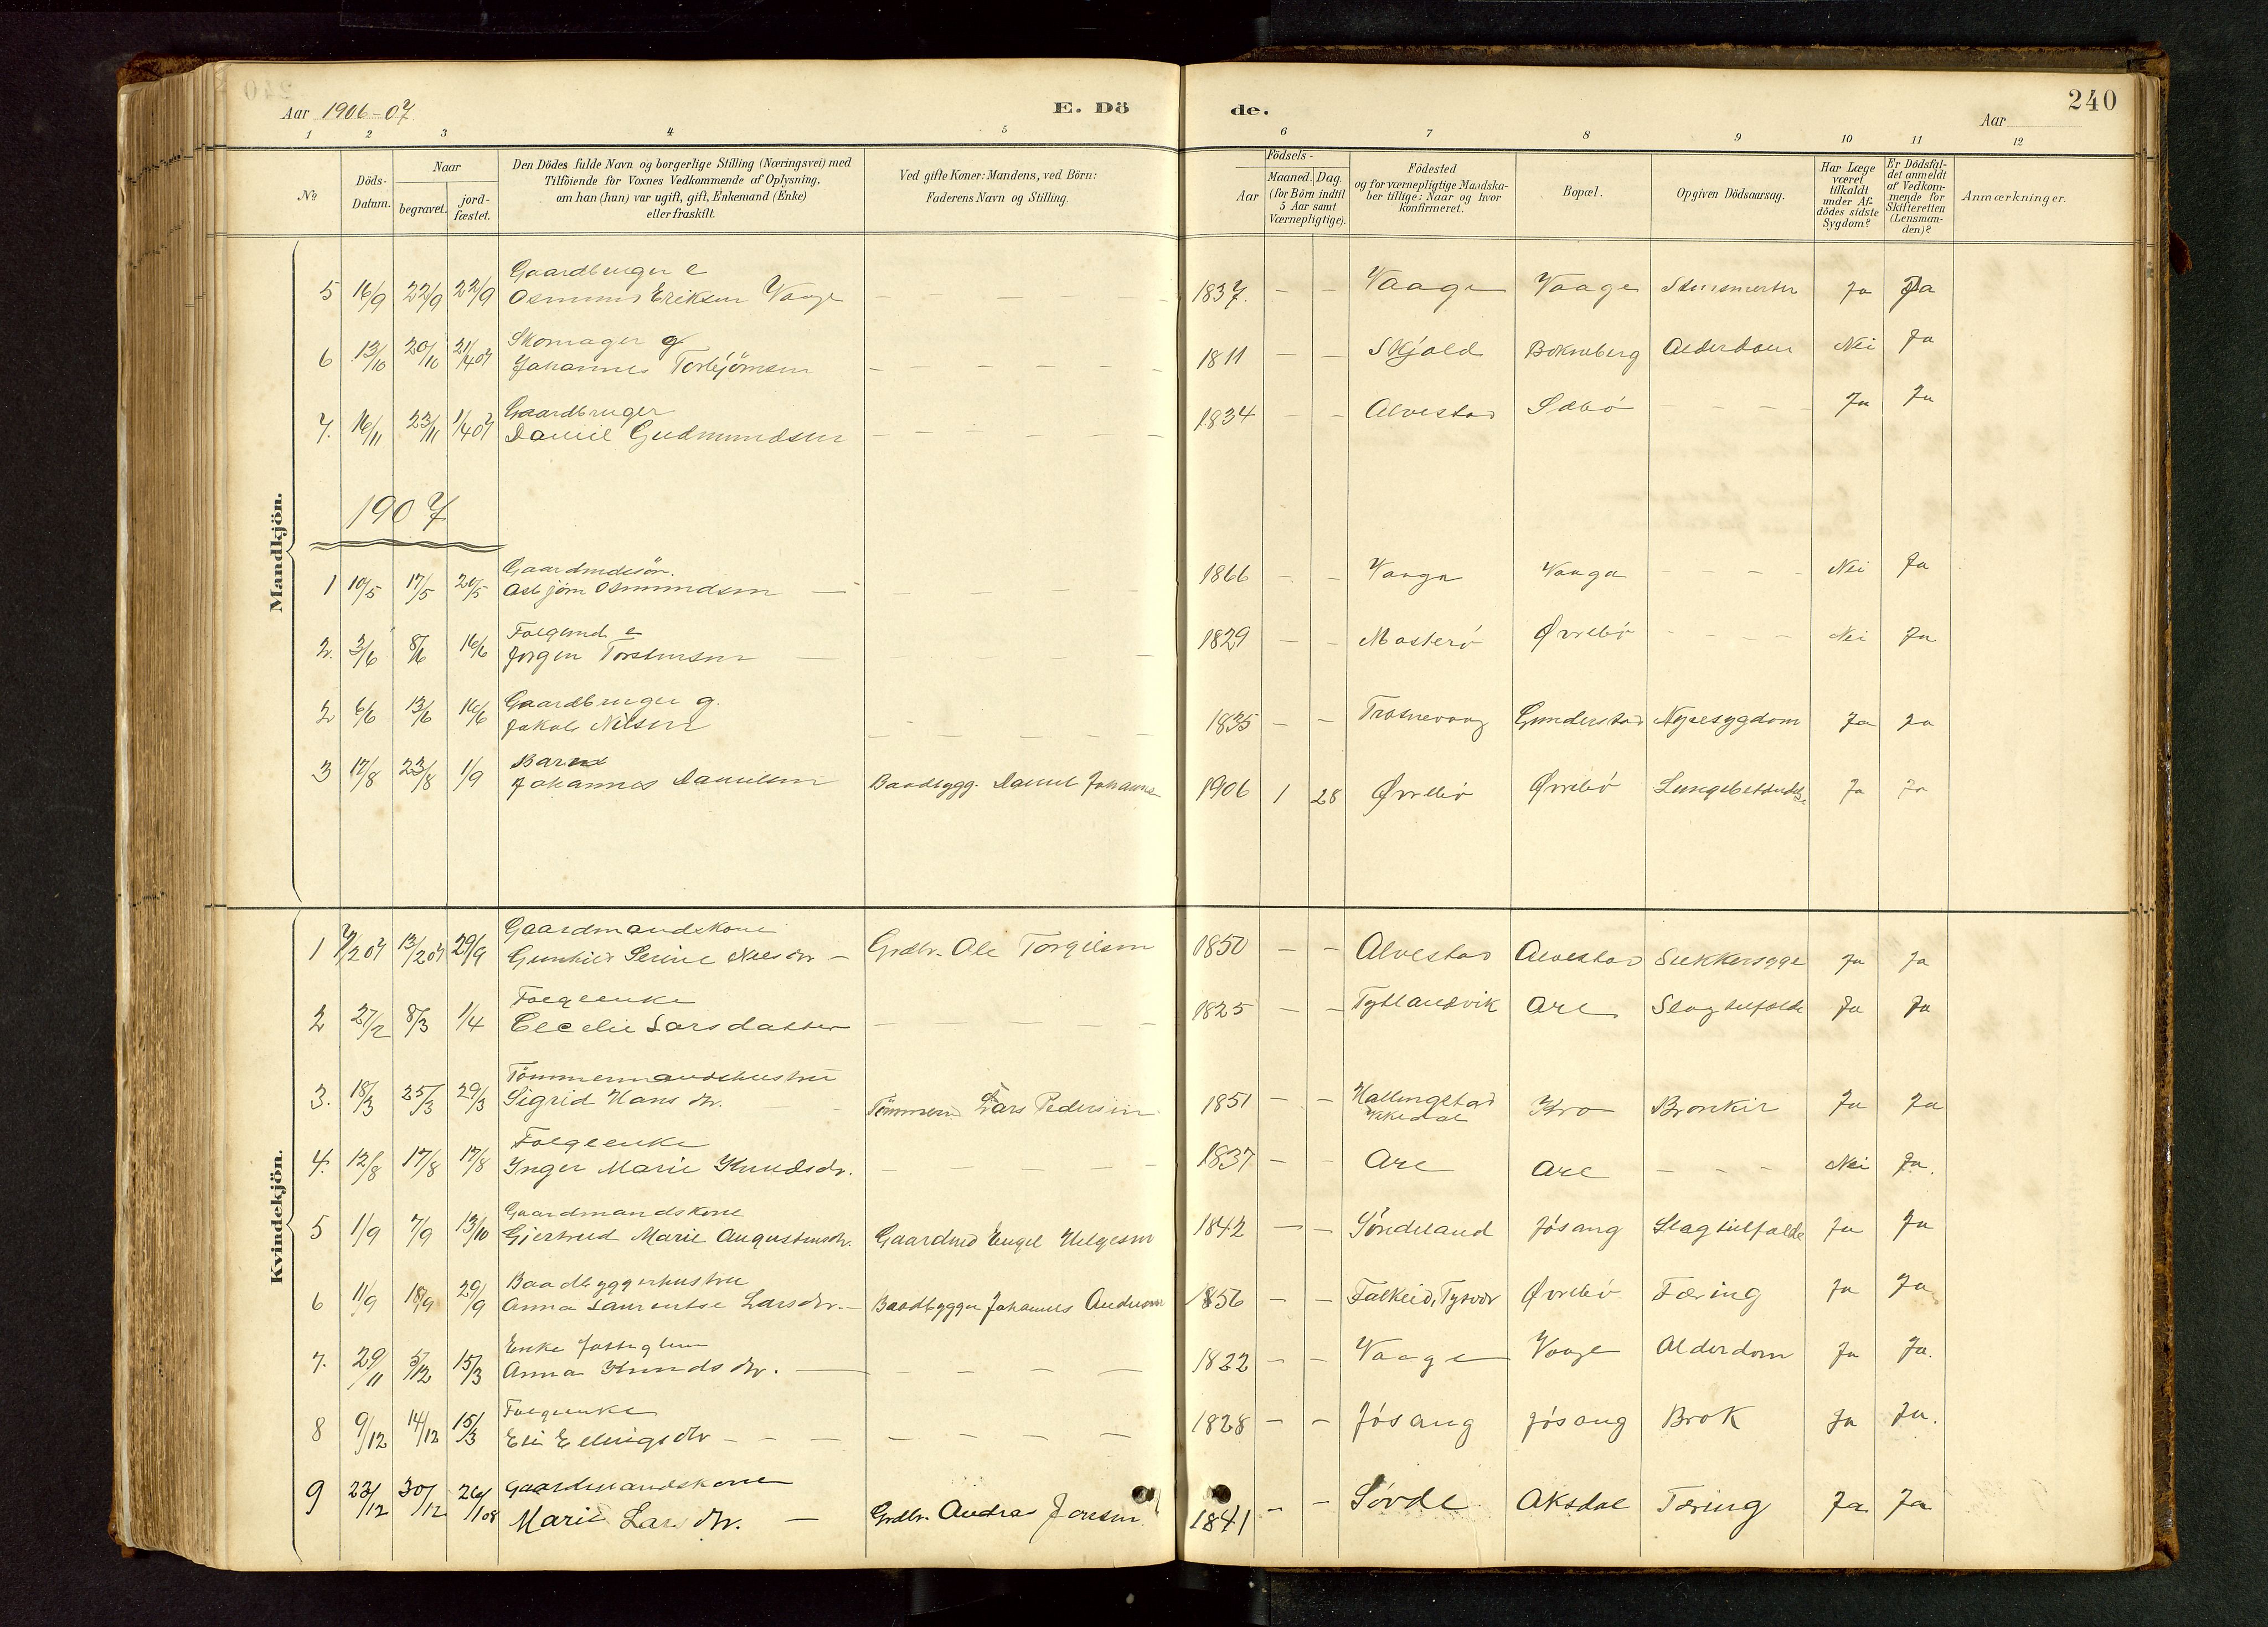 240
Aar 1906-07
E. Dö
de.
Aar
1 2 3 4 5 6 7 8 9 10 11 12
No
Döds-Datum.
Naar
begravet.
jord-fæstet.
Den Dödes fulde Navn og borgerlige Stilling (Næringsvei) med
Tilföiende for Voxnes Vedkommende af Oplysning,
om han (hun) var ugift, gift, Enkemand (Enke)
eller fraskilt.
Ved gifte Koner: Mandens, ved Börn:
Faderens Navn og Stilling.
Födsels-
Aar
Maaned. Dag.
(for Börn indtil
5 Aar samt
Værnepligtige).
Födested
og for værnepligtige Mandska-
ber tillige: Naar og hvor
konfirmeret.
Bopæl.
Opgiven Dödsaarsag.
Har Læge
været
tilkaldt
under Af-
dödes sidste
Sygdom?
Er Dödsfal-
det anmeldt
af Vedkom-
mende for
Skifteretten
(Lensman-
den)?
Anmærkninger.
Mandkjön.
Gaardbruger e
5 16/9 22/9 22/9 Osmund Eriksen Vaage — — — 1837. - - Vaage Vaage Ja Ja
Skomager g
6 13/10 20/10 21/4 07 Johannes Torbjörnsen - - - - - - 1811 - - Skjold Bokneberg Alderdom Nei Ja
Gaardbruger
7. 16/11 23/11 1/4 07 Daniel Gudmundsen - - - - - - 1834 - - Alvestad Sæbö - - - Ja Ja
1907
1 10/5 17/5 20/5 Asbjörn Osmundsen — - - - - 1866 - - Vaaga Vaaga - - - - Nei Ja
2. 3/6 8/6 16/6 Jorgen Torstensen — - - - 1829 - - Mosterö Øvrebö - - - - Nei Ja
Gaardbruger g.
2 6/6 13/6 16/6 Jakob Nilsen - - - - - 1835 - - Gunderstad Nyresygdom Ja Ja
Barn
3 17/8 23/8 1/9 Johannes Danielsen Baadbygg. Daniel Johannes 1906 1 28 Øvrebö Øvrebö Lungebetændelse Ja Ja
Kvindekjön.
Gaardmandskone
1 7/2 07 13/2 07 29/9 Gunhild Serine Nilsdtr — Grdbr. Ole Torgilsen 1850 - - Alvestad Alvestad Sukkersyge Ja Ja
Folgeenke
2 27/2 8/3 1/4 Cecelie Larsdatter — — — — 1825 - - Tytlandsvik Are Slagtilfælde Ja Ja
Tömmermandshustru
3. 18/3 25/3 29/3 Sigrid Hansdtr. - Tömmerm. Lars Pedersen 1851 - - Hallingstad
Vikedal Kro Bronkit Ja Ja
Folgeenke
4. 12/8 17/8 17/8 Inger Marie Knudsdtr. - - - - - 1837 - - Are Are - - - Nei Ja.
Gaardmandskone
5 1/9 7/9 13/10 Gjertrud Marie Augustinsdtr. Gaardmd Engel Helgesen 1842 - - Söndeland Jösang Slagtilfælde Ja Ja
Baadbyggerhustru
6 11/9 18/9 29/9 Anna Laurentse Larsdtr. - Baadbygger Johannes Andersen 1856 - - Falkeid, Tysvær Øvrebö Tæring Ja Ja
Enke
7. 29/11 5/12 15/3 Anna Knudsdtr. — - - - - 1822 - - Vaage Vaage Alderdom Ja Ja.
Folgeenke
8 9/12 14/12 15/3 Eli Ellingsdtr - - - - - - - - 1828 - - Jösang Jösang Brok Ja Ja.
Gaardmandskone
9 23/12 30/12 26/1 08 Marie Larsdtr. — Grdbr. Andras Jonsen. 1841 - - Sövde Aksdal Tæring Ja Ja